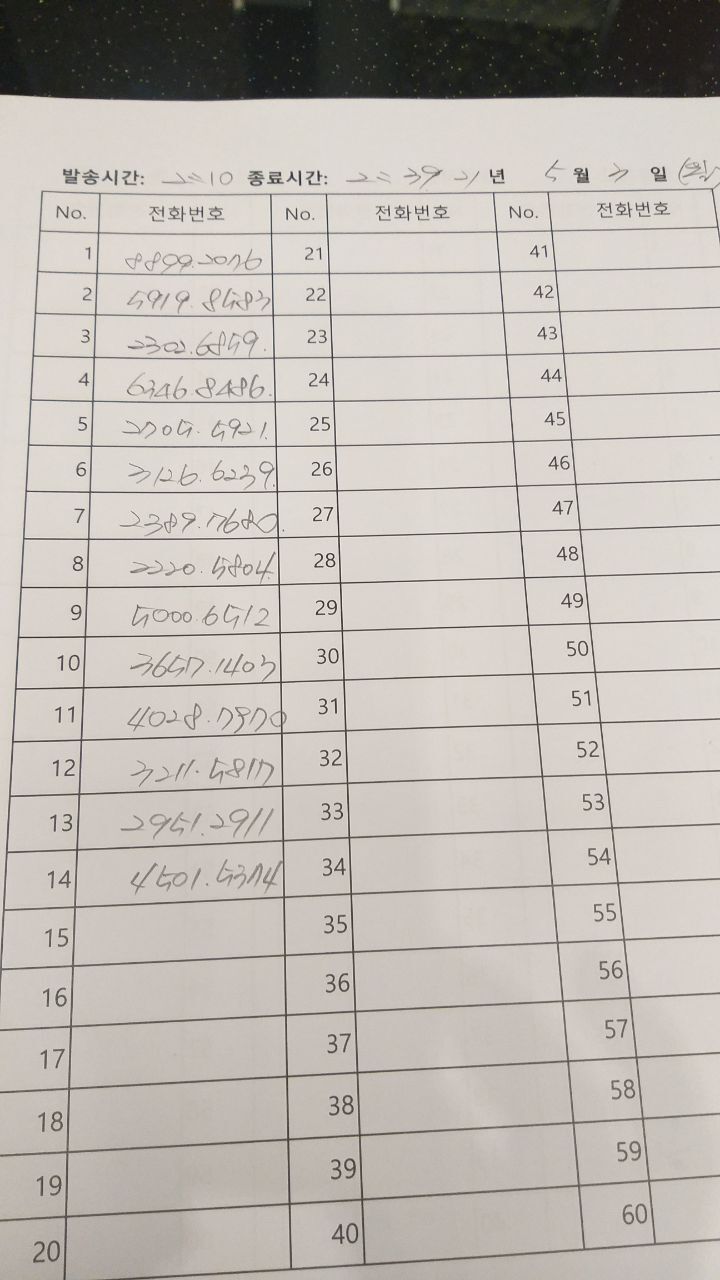 발송시간: 2:10 종료시간: 2:39 21년 5월 3일 (월)
No. 전화번호 No. 전화번호 No. 전화번호
1 8899.2076 21 41
2 5919.8583 22 42
3 2302.6859. 23 43
4 6346.8486. 24 44
5 2705.5921. 25 45
6 3126.6239. 26 46
7 2389.7680. 27 47
8 2220.5804. 28 48
9 5000.6512 29 49
10 3657.1403 30 50
11 4028.7970 31 51
12 3211.5817 32 52
13 2951.2911 33 53
14 4501.5374 34 54
15 35 55
16 36 56
17 37 57
18 38 58
19 39 59
20 40 60